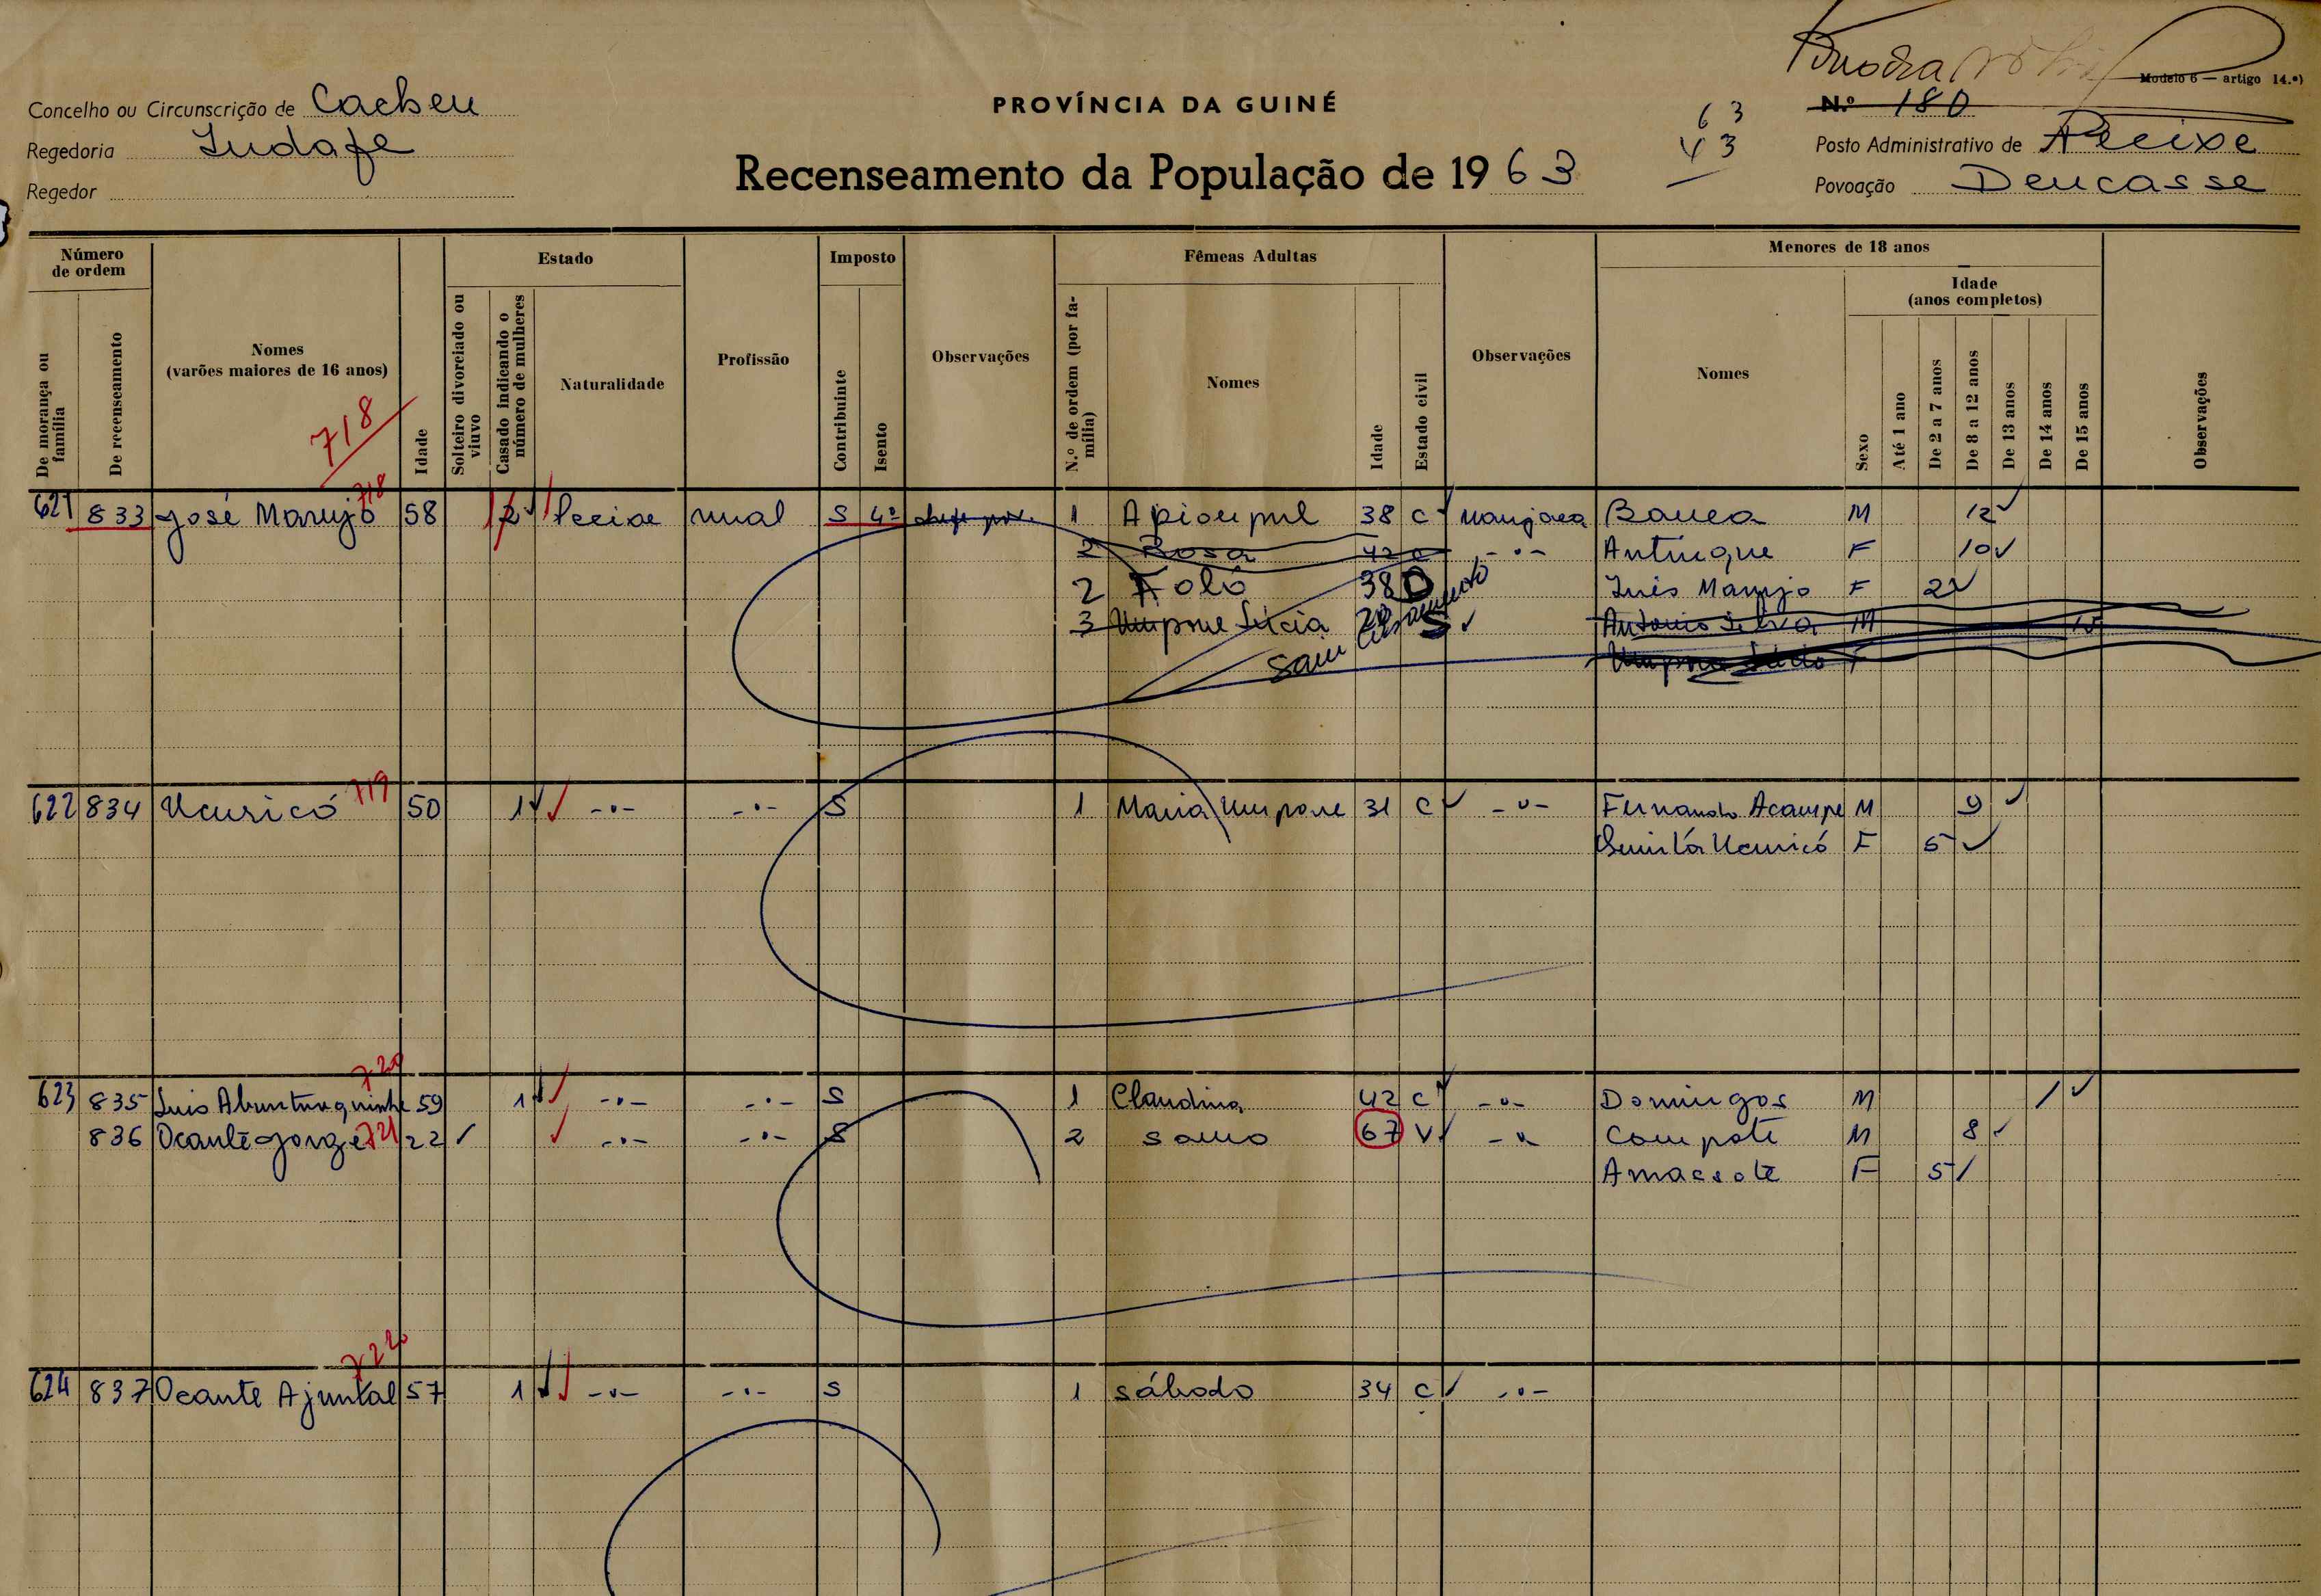 Modelo 6 — artigo 14.º)
Concelho ou Circunscrição de Cacheu
PROVÍNCIA DA GUINÉ
N.º 180
Regedoria
63
43
Posto Administrativo de
Recenseamento da População de 1963
Regedor
Povoação Deucasse
Número de ordem
Estado
Imposto
Fêmeas Adultas
Menores de 18 anos
Idade
(anos completos)
De morança ou família
De recenseamento
Nomes
(varões maiores de 16 anos)
Idade
Solteiro divorciado ou viuvo
Casado indicando o número de mulheres
Naturalidade
Profissão
Contribuinte
Isento
Observações
N.º de ordem (por família)
Nomes
Idade
Estado civil
Observações
Nomes
Sexo
Até 1 ano
De 2 a 7 anos
De 8 a 12 anos
De 13 anos
De 14 anos
De 15 anos
Observações
718
718
621 833 José Marujo 58 2 S 1 38 C M 12
2 Rosa 42 C -"- F 10
2 Foló 38 Inês Marujo F 2
3 Lúcia S Antonio Silva M
719
622 834 50 1 -"- -"- S 1 Maria 31 C -"- Fernando M 9
F 5
720
623 835 Luis 59 1 -"- -"- S 1 Claudina 42 C -"- Domingos M
836 Ocante Jorge 721 22 -"- -"- S 2 67 V -"- M 8
F 5
722
624 837 Ocante Ajuntal 57 1 -"- -"- S 1 Sábado 34 C -"-